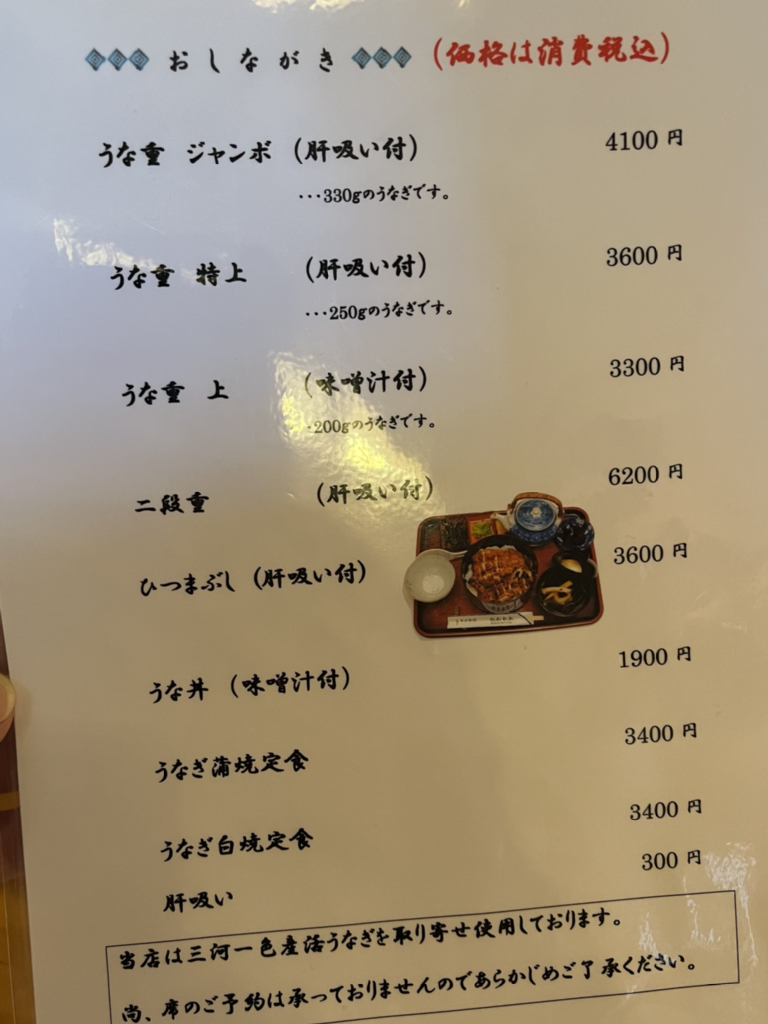 おしながき (価格は消費税込)
うな重 ジャンボ (肝吸い付) 4100 円
・・・330gのうなぎです。
うな重 特上 (肝吸い付) 3600 円
・・・250gのうなぎです。
うな重 上 (味噌汁付) 3300 円
・200gのうなぎです。
二段重 (肝吸い付) 6200 円
ひつまぶし (肝吸い付) 3600 円
うな丼 (味噌汁付) 1900 円
うなぎ蒲焼定食 3400 円
うなぎ白焼定食 3400 円
肝吸い 300 円
当店は三河一色産活うなぎを取り寄せ使用しております。
尚、席のご予約は承っておりませんのであらかじめご了承ください。